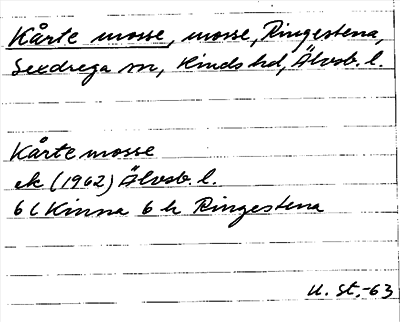 Kårte mosse, mosse, Ringestena,
Sexdrega sn, Kinds hd, Älvsb. l.
Kårte mosse
ek (1962) Älvsb. l.
6 C Kinna 6 h Ringestena
U. St.-63